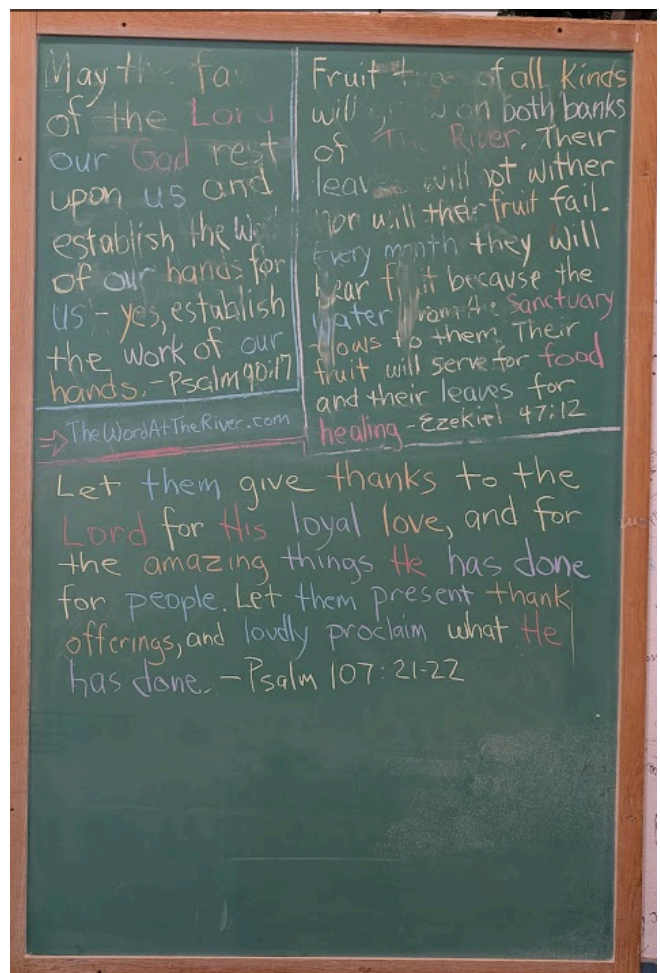 May the
of the Lord
our God rest
upon us and
establish the
of our hands for
us - yes, establish
the work of our
hands. - Psalm 90:17
TheWordAtTheRiver.com
Fruit of all kinds
will on both banks
of The River. Their
will not wither
nor will their fruit fail.
Every month they will
bear fruit because the
water from the Sanctuary
flows to them. Their
fruit will serve for food
and their leaves for
healing - Ezekiel 47:12
Let them give thanks to the
Lord for His loyal love, and for
the amazing things He has done
for people. Let them present thank
offerings, and loudly proclaim what He
has done. - Psalm 107: 21-22